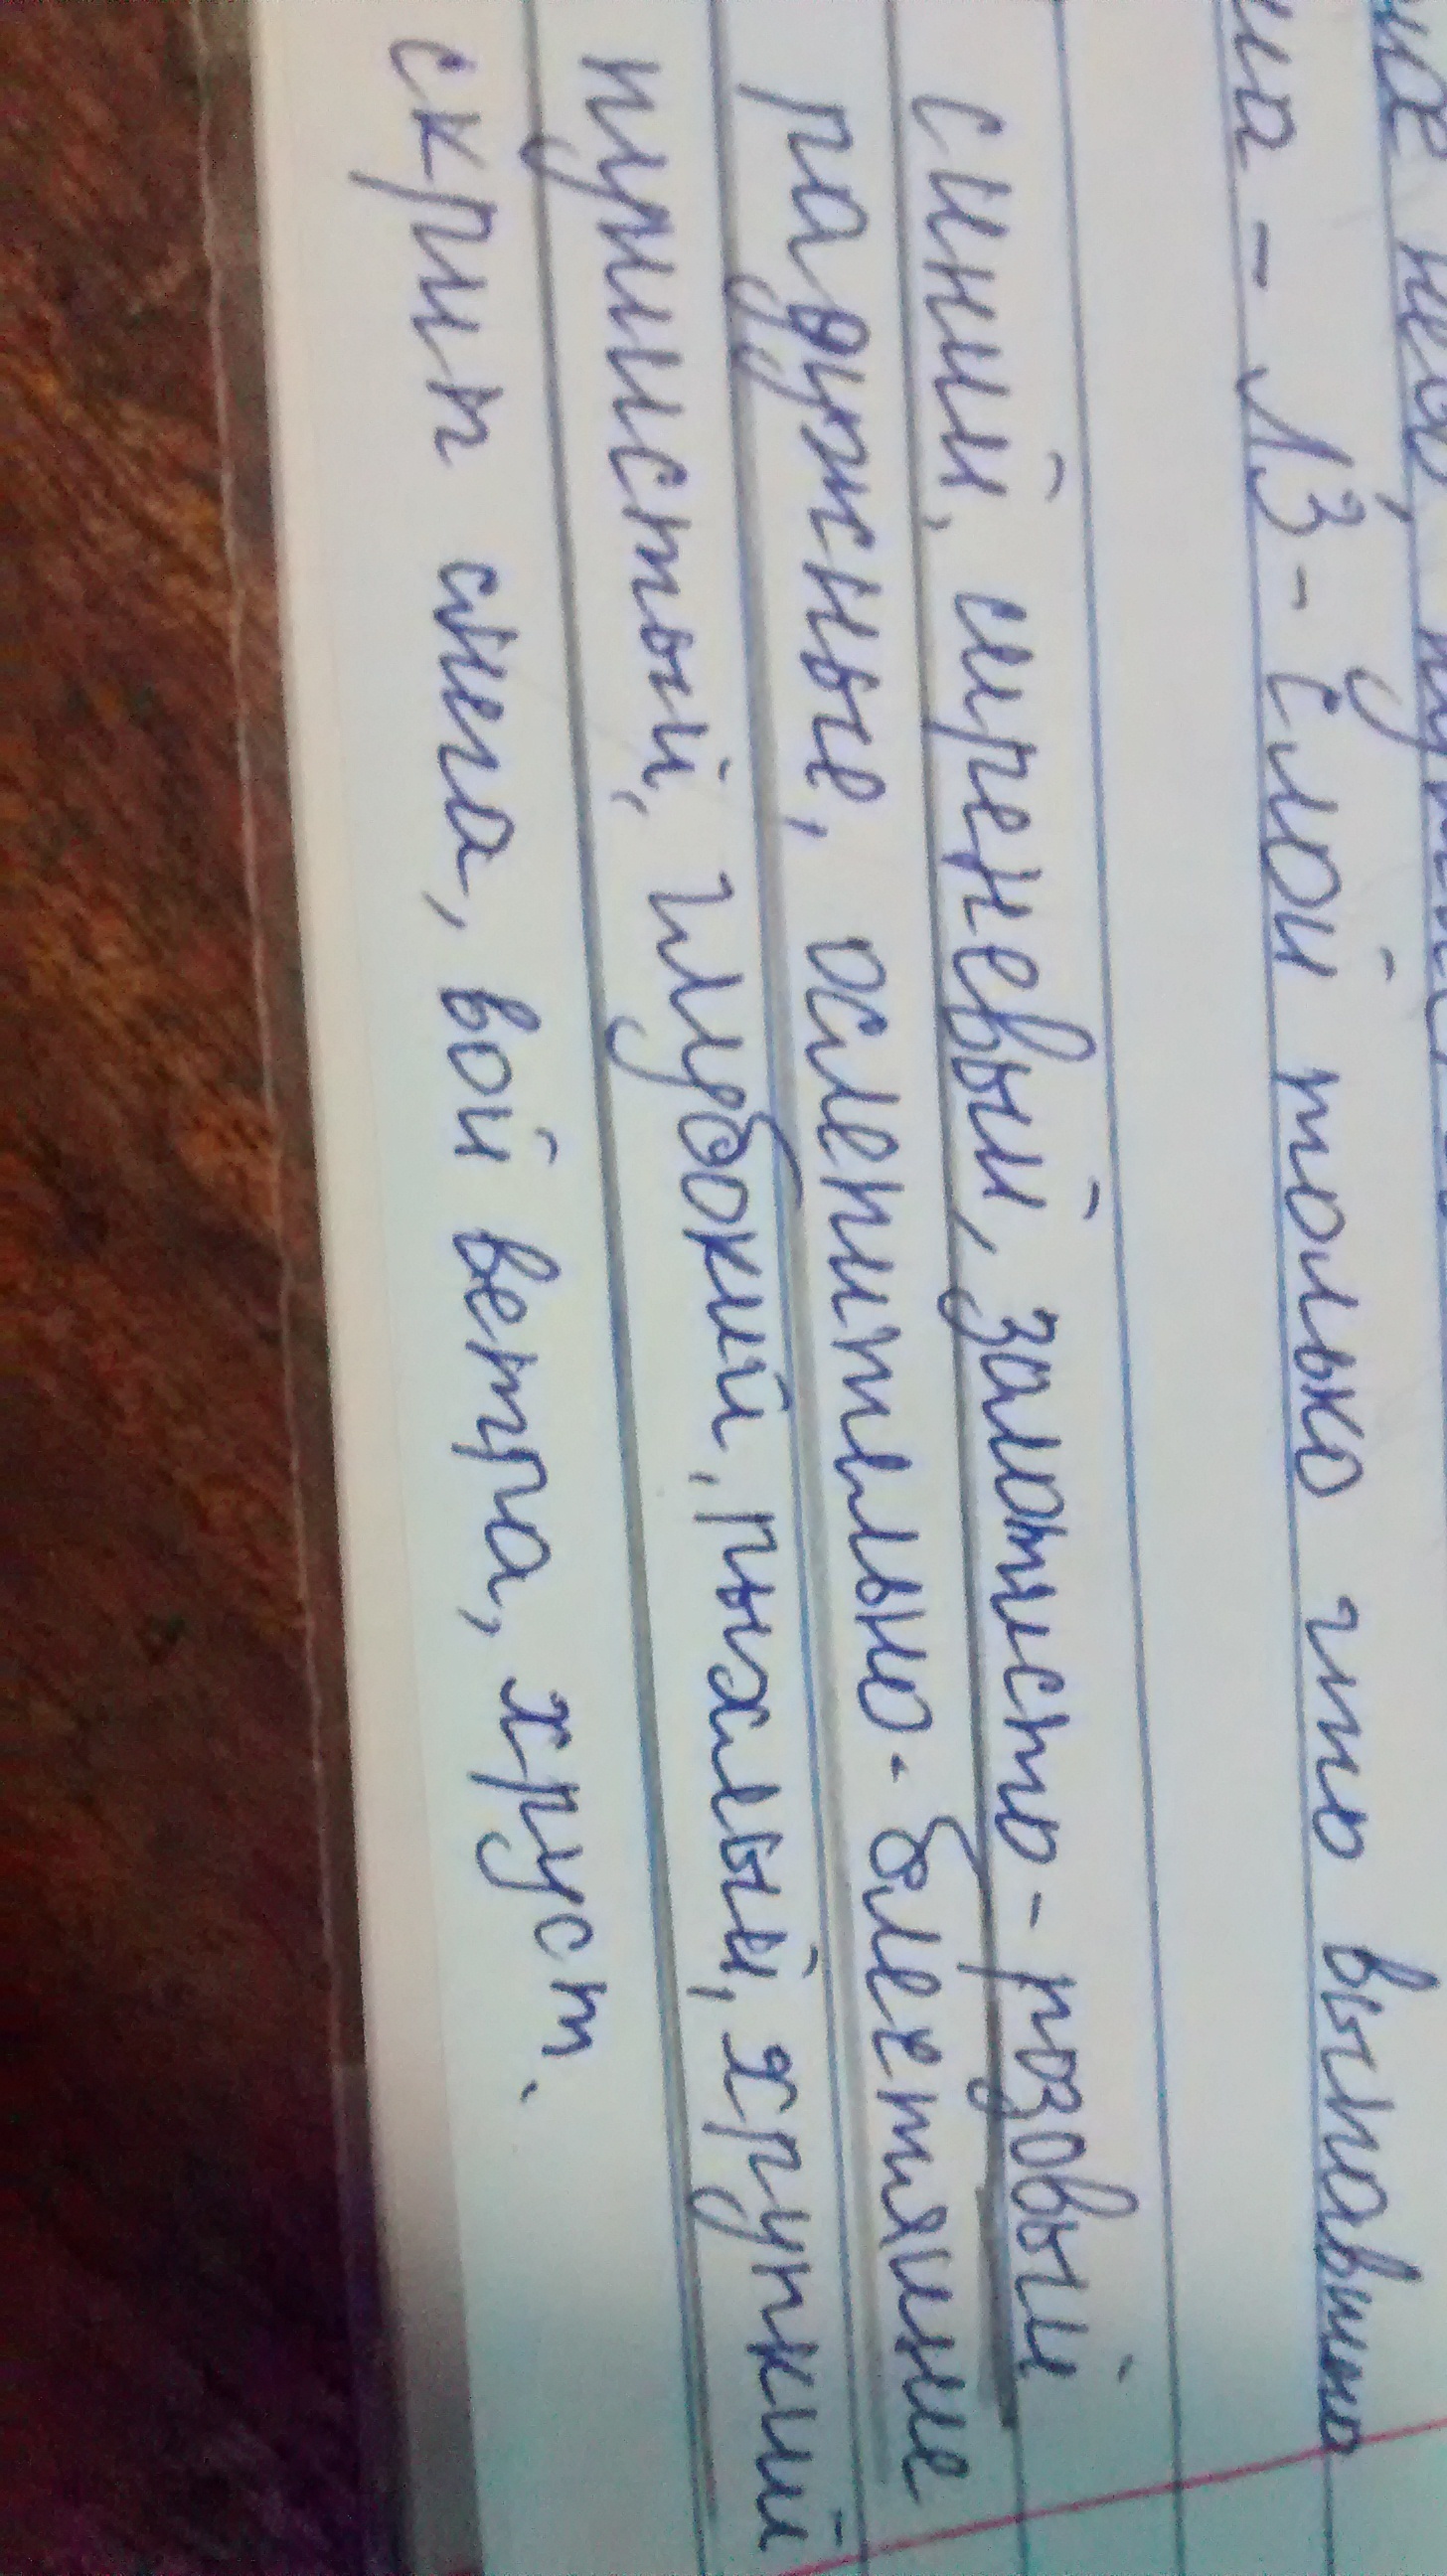 на - ЛЗ - Слой только что выпавшего
синий, сиреневый, золотисто-розовый
радужные, ослепительно-блестящие
пушистый, глубокий, рыхлый, хрупкий
скрип снега, вой ветра, хруст.